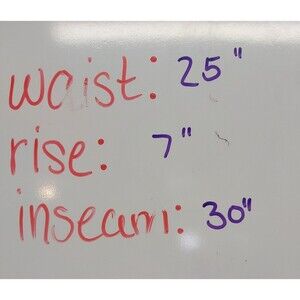 waist: 25"
rise: 7"
inseam: 30"